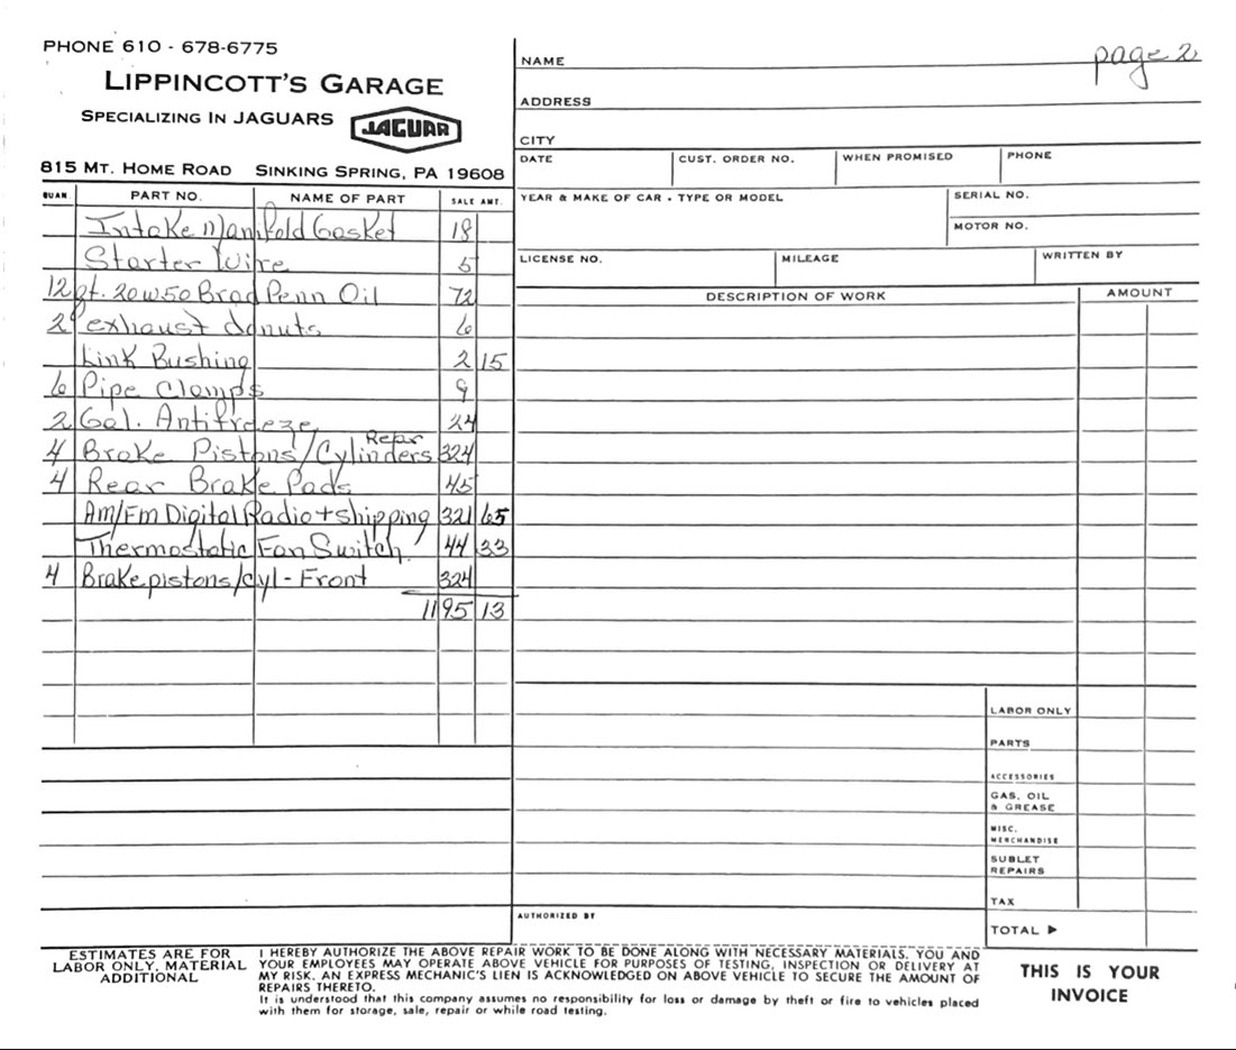 PHONE 610 - 678-6775
LIPPINCOTT'S GARAGE
SPECIALIZING IN JAGUARS JAGUAR
815 MT. HOME ROAD SINKING SPRING, PA 19608
page 2
NAME
ADDRESS
CITY
DATE CUST. ORDER NO. WHEN PROMISED PHONE
YEAR & MAKE OF CAR - TYPE OR MODEL SERIAL NO.
MOTOR NO.
LICENSE NO. MILEAGE WRITTEN BY
DESCRIPTION OF WORK AMOUNT
QUAN. PART NO. NAME OF PART SALE AMT.
Intake Manifold Gasket 18
Starter Wire 5
12 qt. 20W50 Brad Penn Oil 72
2 exhaust donuts 6
Link Bushing 2 15
6 Pipe Clamps 9
2 Gal. Antifreeze 24
4 Brake Pistons/Cylinders Rear 324
4 Rear Brake Pads 45
Am/Fm Digital Radio + shipping 321 65
Thermostatic Fan Switch 44 33
4 Brake pistons/cyl - Front 324
1195 13
LABOR ONLY
PARTS
ACCESSORIES
GAS, OIL
& GREASE
MISC.
MERCHANDISE
SUBLET
REPAIRS
TAX
AUTHORIZED BY
TOTAL ▶
ESTIMATES ARE FOR
LABOR ONLY, MATERIAL
ADDITIONAL
I HEREBY AUTHORIZE THE ABOVE REPAIR WORK TO BE DONE ALONG WITH NECESSARY MATERIALS. YOU AND
YOUR EMPLOYEES MAY OPERATE ABOVE VEHICLE FOR PURPOSES OF TESTING, INSPECTION OR DELIVERY AT
MY RISK. AN EXPRESS MECHANIC'S LIEN IS ACKNOWLEDGED ON ABOVE VEHICLE TO SECURE THE AMOUNT OF
REPAIRS THERETO.
It is understood that this company assumes no responsibility for loss or damage by theft or fire to vehicles placed
with them for storage, sale, repair or while road testing.
THIS IS YOUR
INVOICE